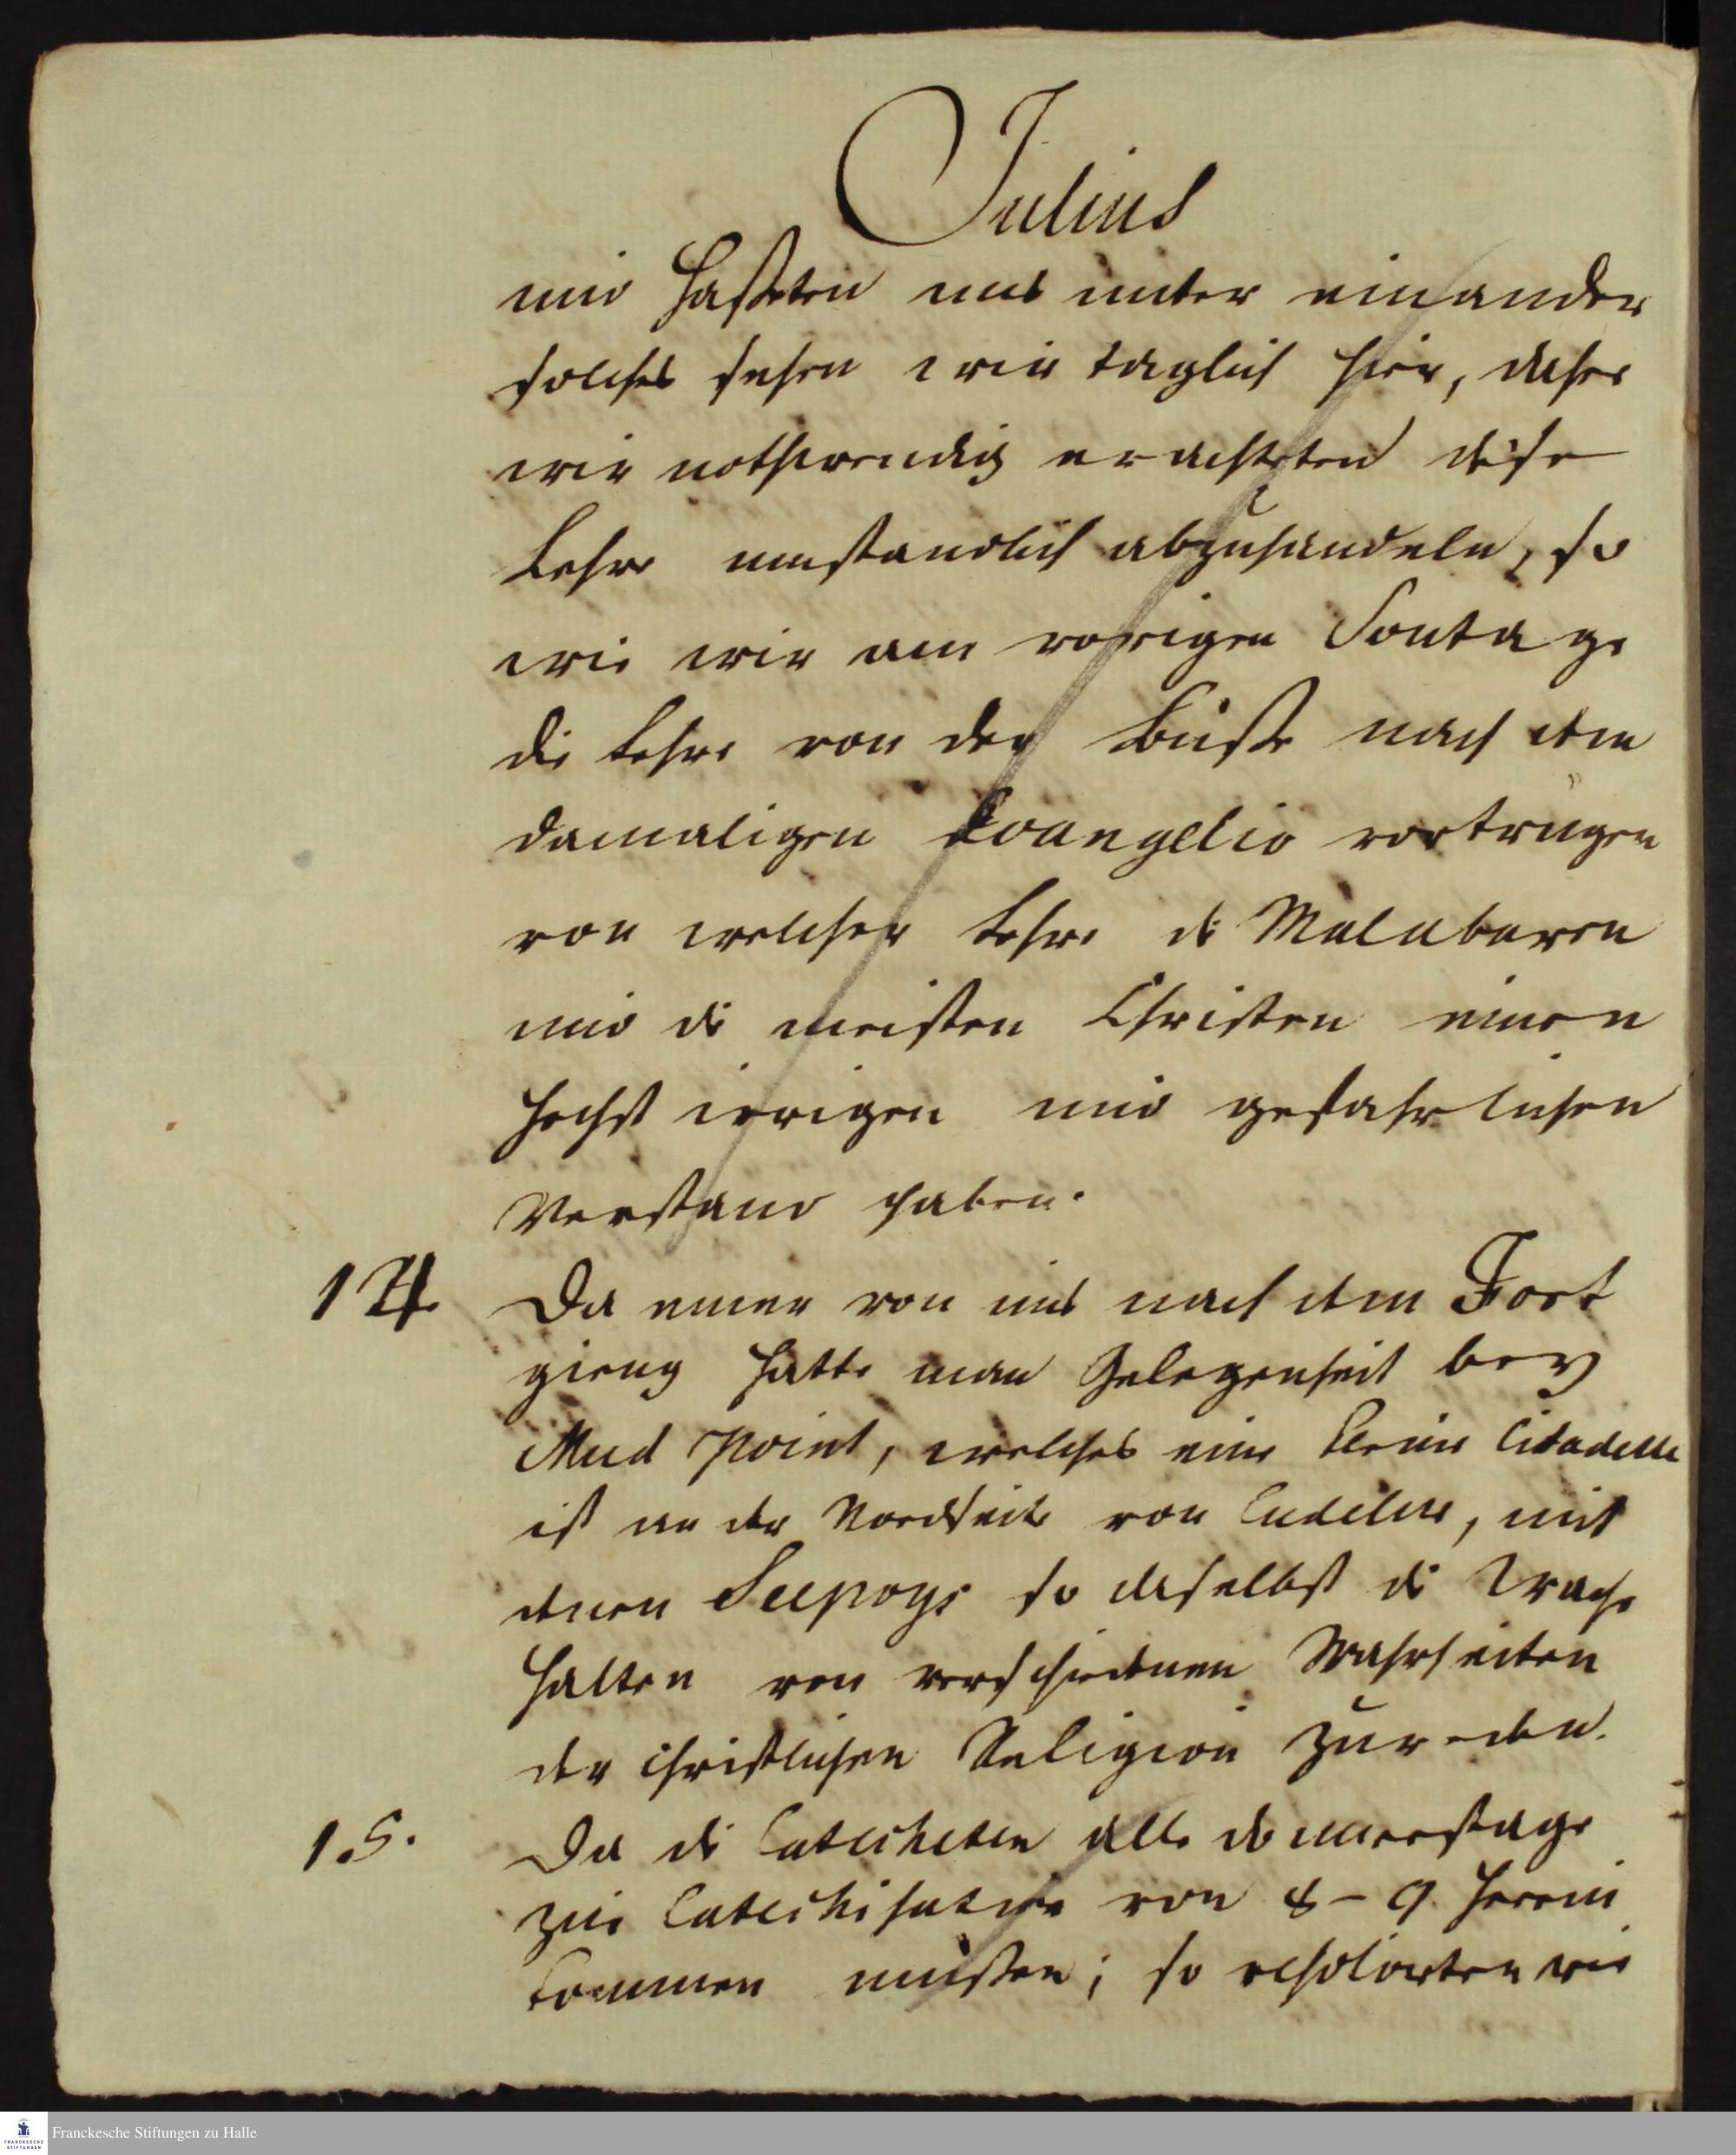 Julius
und hasseten uns unter einander
solches sehen wir taglich hier, daher
wir nothwendig erachteten diese
Lehre umstandlich abzuhandeln, so
wie wir am vorigen Sontage
die Lehre von der Busse nach dem
damaligen Evangelio vortrugen
von welcher Lehre die Malabaren
und die meisten Christen einen
hochst irrigen und gefahrlichen
Verstand haben.
14. Da einer von uns nach dem Fort
gieng hatte man Gelegenheit bey
Mud Point, welches eine kleine Citadelle
ist an der Nordseite von Cudelur, mit
denen Seepoys so daselbst die Wache
halten von verschiedenen Wahrheiten
der christlichen Religion zureden.
15. Da die Catecheten alle donnerstage
zur Catechisation von 8-9 herein
kommen mussen; so resolvirten wir
Franckesche Stiftungen zu Halle
FRANCKESCHE
STIFTUNGEN